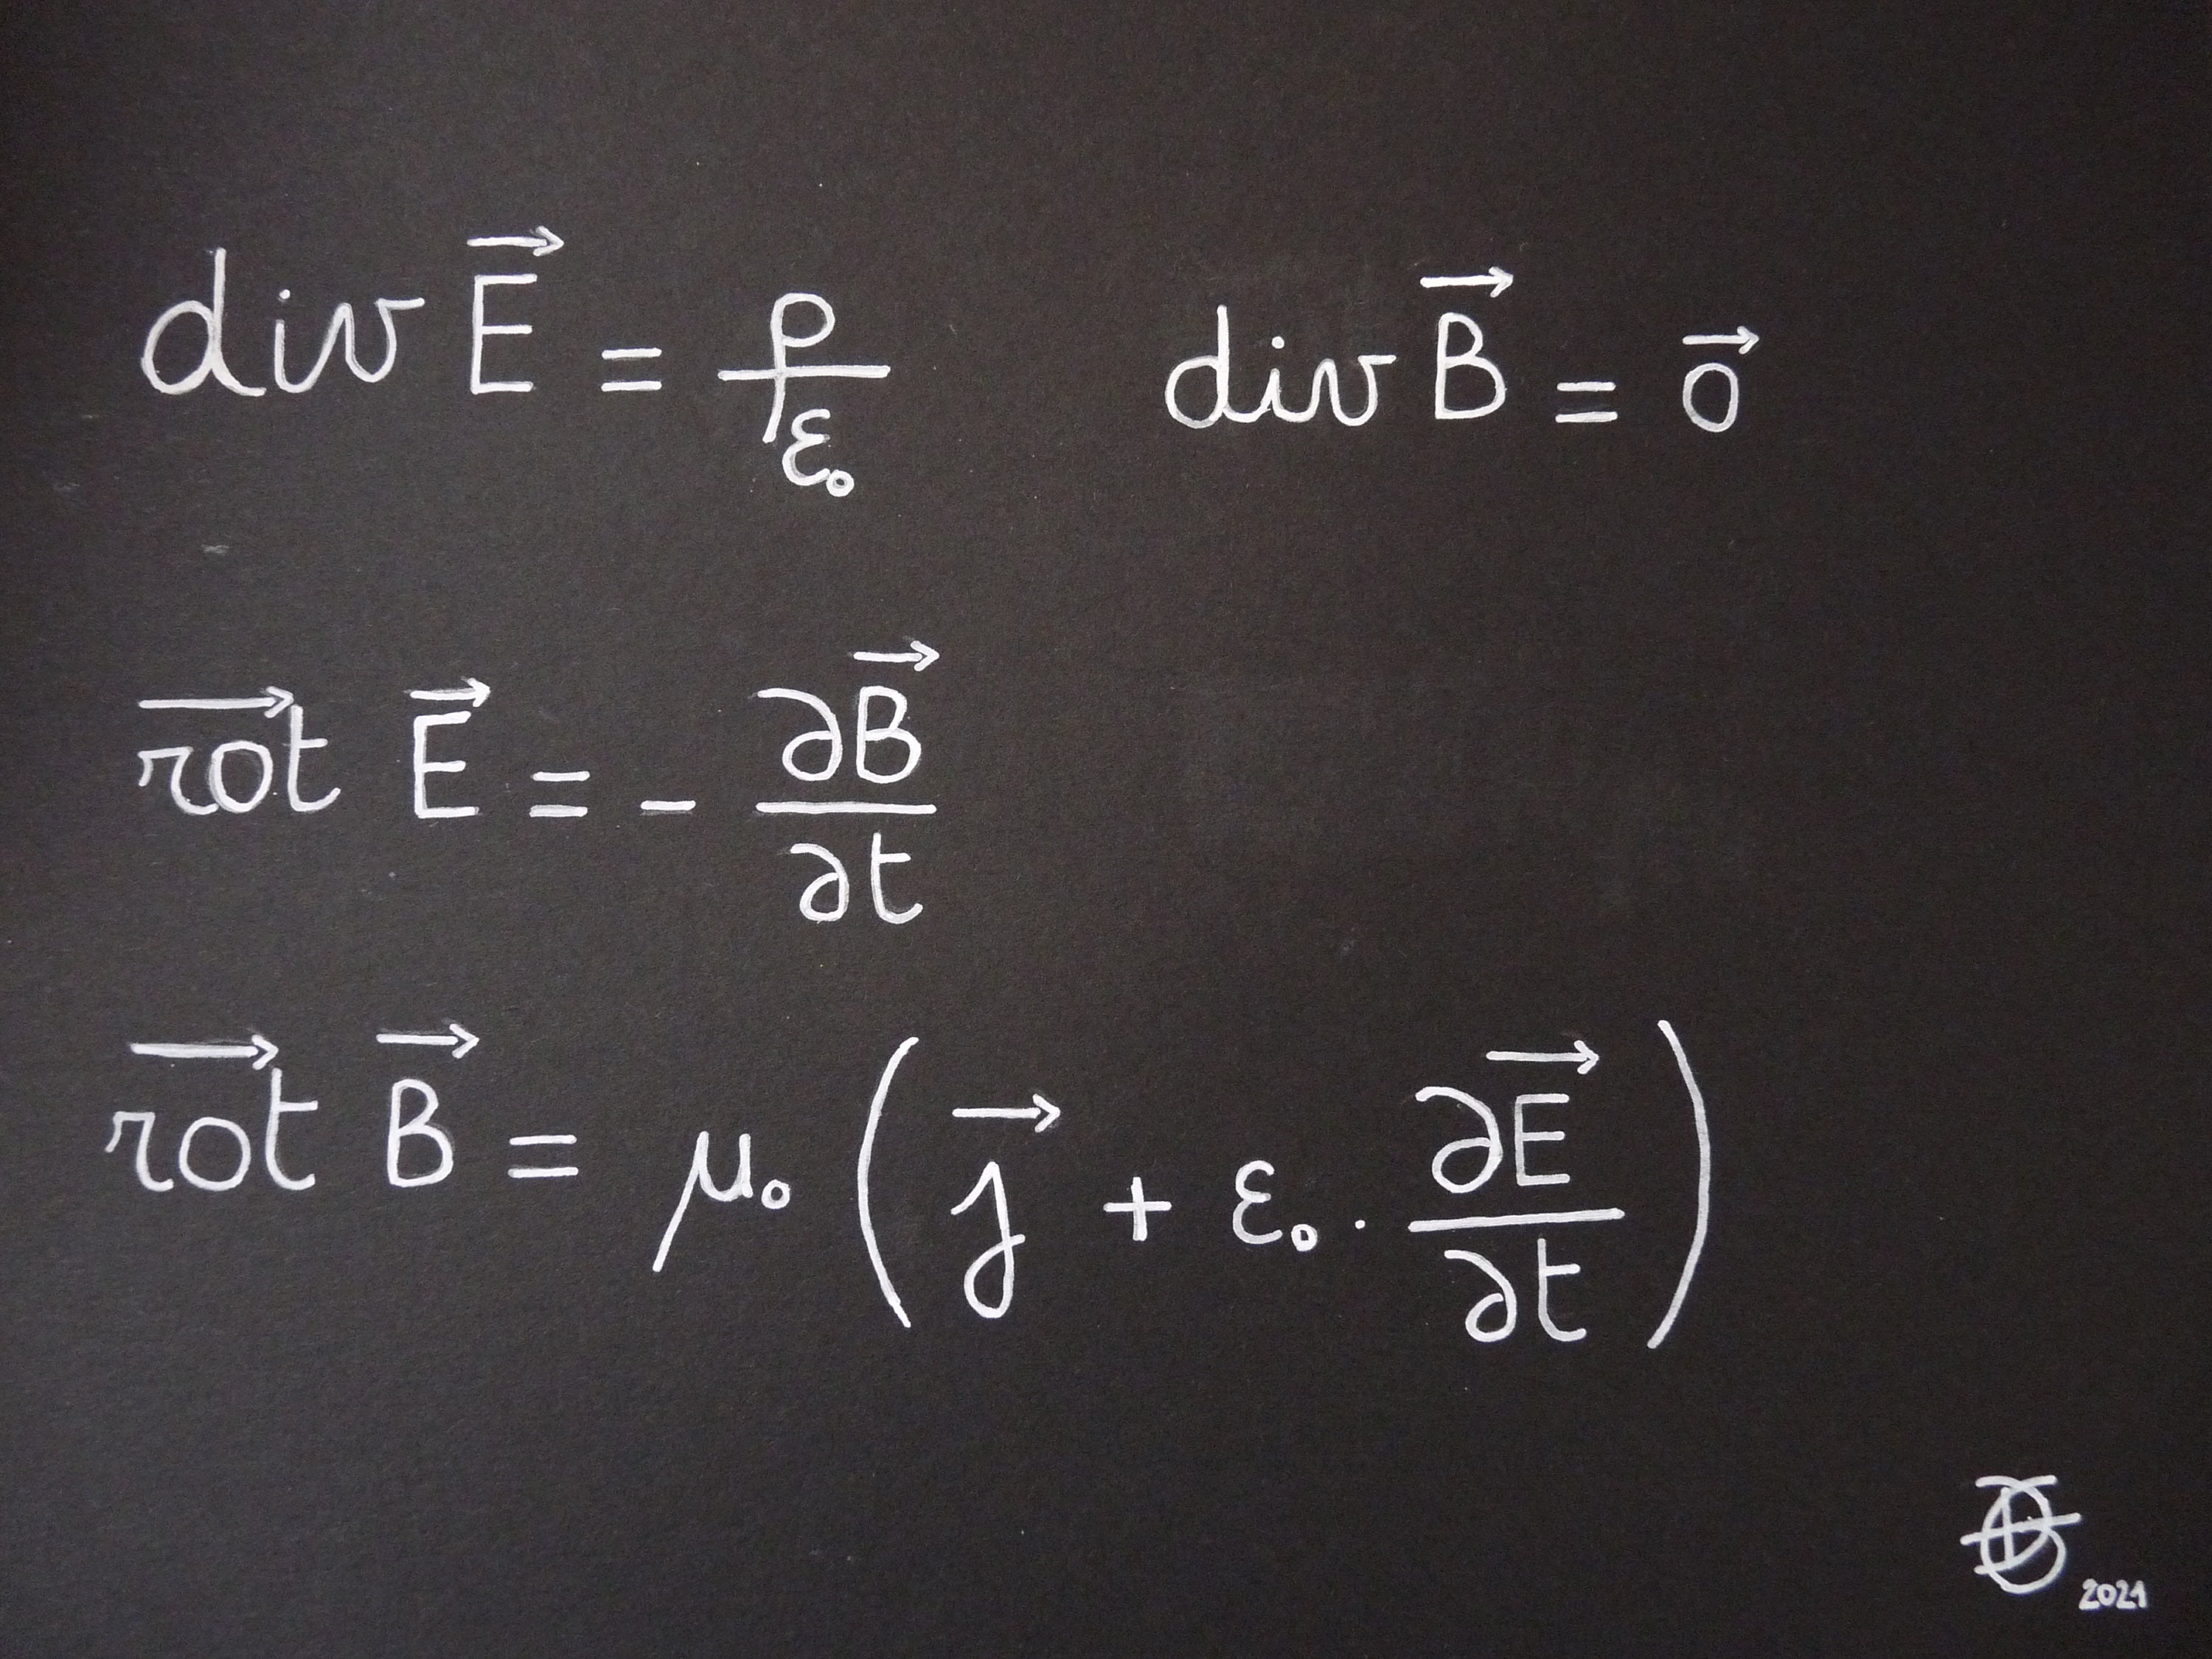 div E⃗ = ρ/ε₀    div B⃗ = 0⃗
rot⃗ E⃗ = - ∂B⃗/∂t
rot⃗ B⃗ = μ₀ (j⃗ + ε₀ · ∂E⃗/∂t)
2021